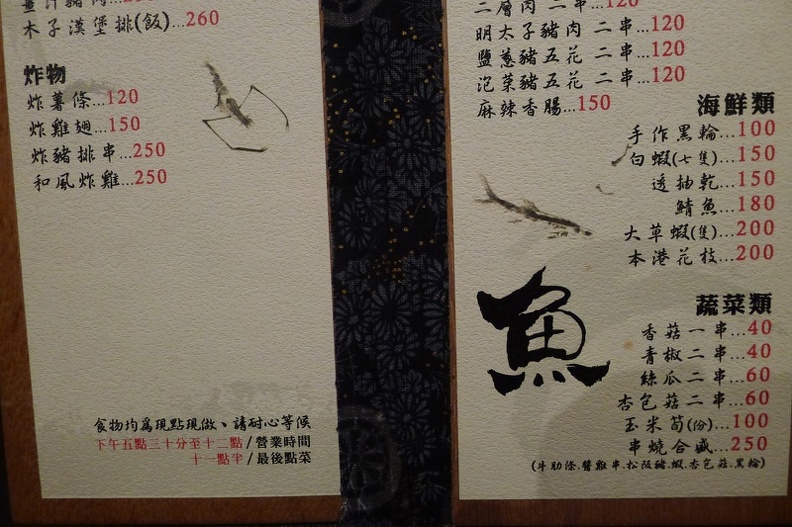 薑汁豬肉
木子漢堡排(飯)...260
炸物
炸薯條...120
炸雞翅...150
炸豬排串...250
和風炸雞...250
食物均為現點現做、請耐心等候
下午五點三十分至十二點/營業時間
十一點半/最後點菜
二層肉 二串...120
明太子豬肉 二串...120
鹽蔥豬五花 二串...120
泡菜豬五花 二串...120
麻辣香腸...150
海鮮類
手作黑輪...100
白蝦(七隻)...150
透抽乾...150
鯖魚...180
大草蝦(隻)...200
本港花枝...200
魚
蔬菜類
香菇一串...40
青椒二串...40
絲瓜二串...60
杏包菇二串...60
玉米筍(份)...100
串燒合盛...250
(牛肋條.醬雞串.松阪豬.蝦.杏包菇.黑輪)